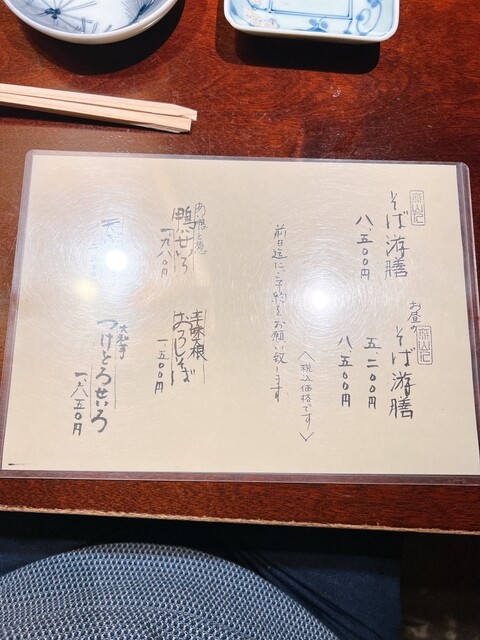 そば游膳
八、五〇〇円
お昼の
そば游膳
五、二〇〇円
八、五〇〇円
＜税込価格です＞
前日迄にご予約をお願い致します
鴨せいろ
辛味大根
おろしそば
一、五〇〇円
大和芋
つけとろせいろ
一、六五〇円